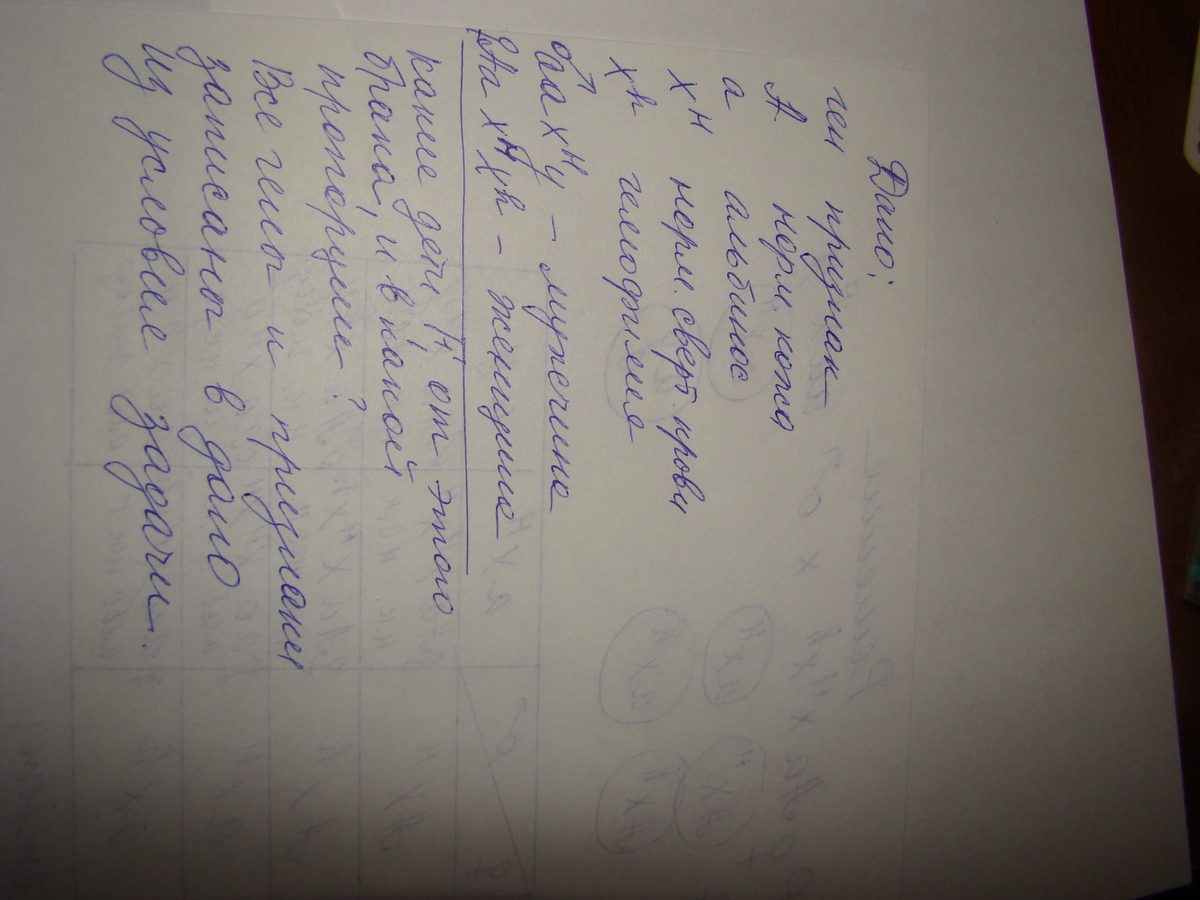 Дано:
ген признак
А норм. кожа
а альбинос
Xᴴ норм. сверт. крови
Xʰ гемофилия
♂аа XᴴY – мужчина
♀Аа XᴴXʰ – женщина
какие дети от этого
брака, и в какой
пропорции?
Все гены и признаки
записаны в дано
Из условия задачи.